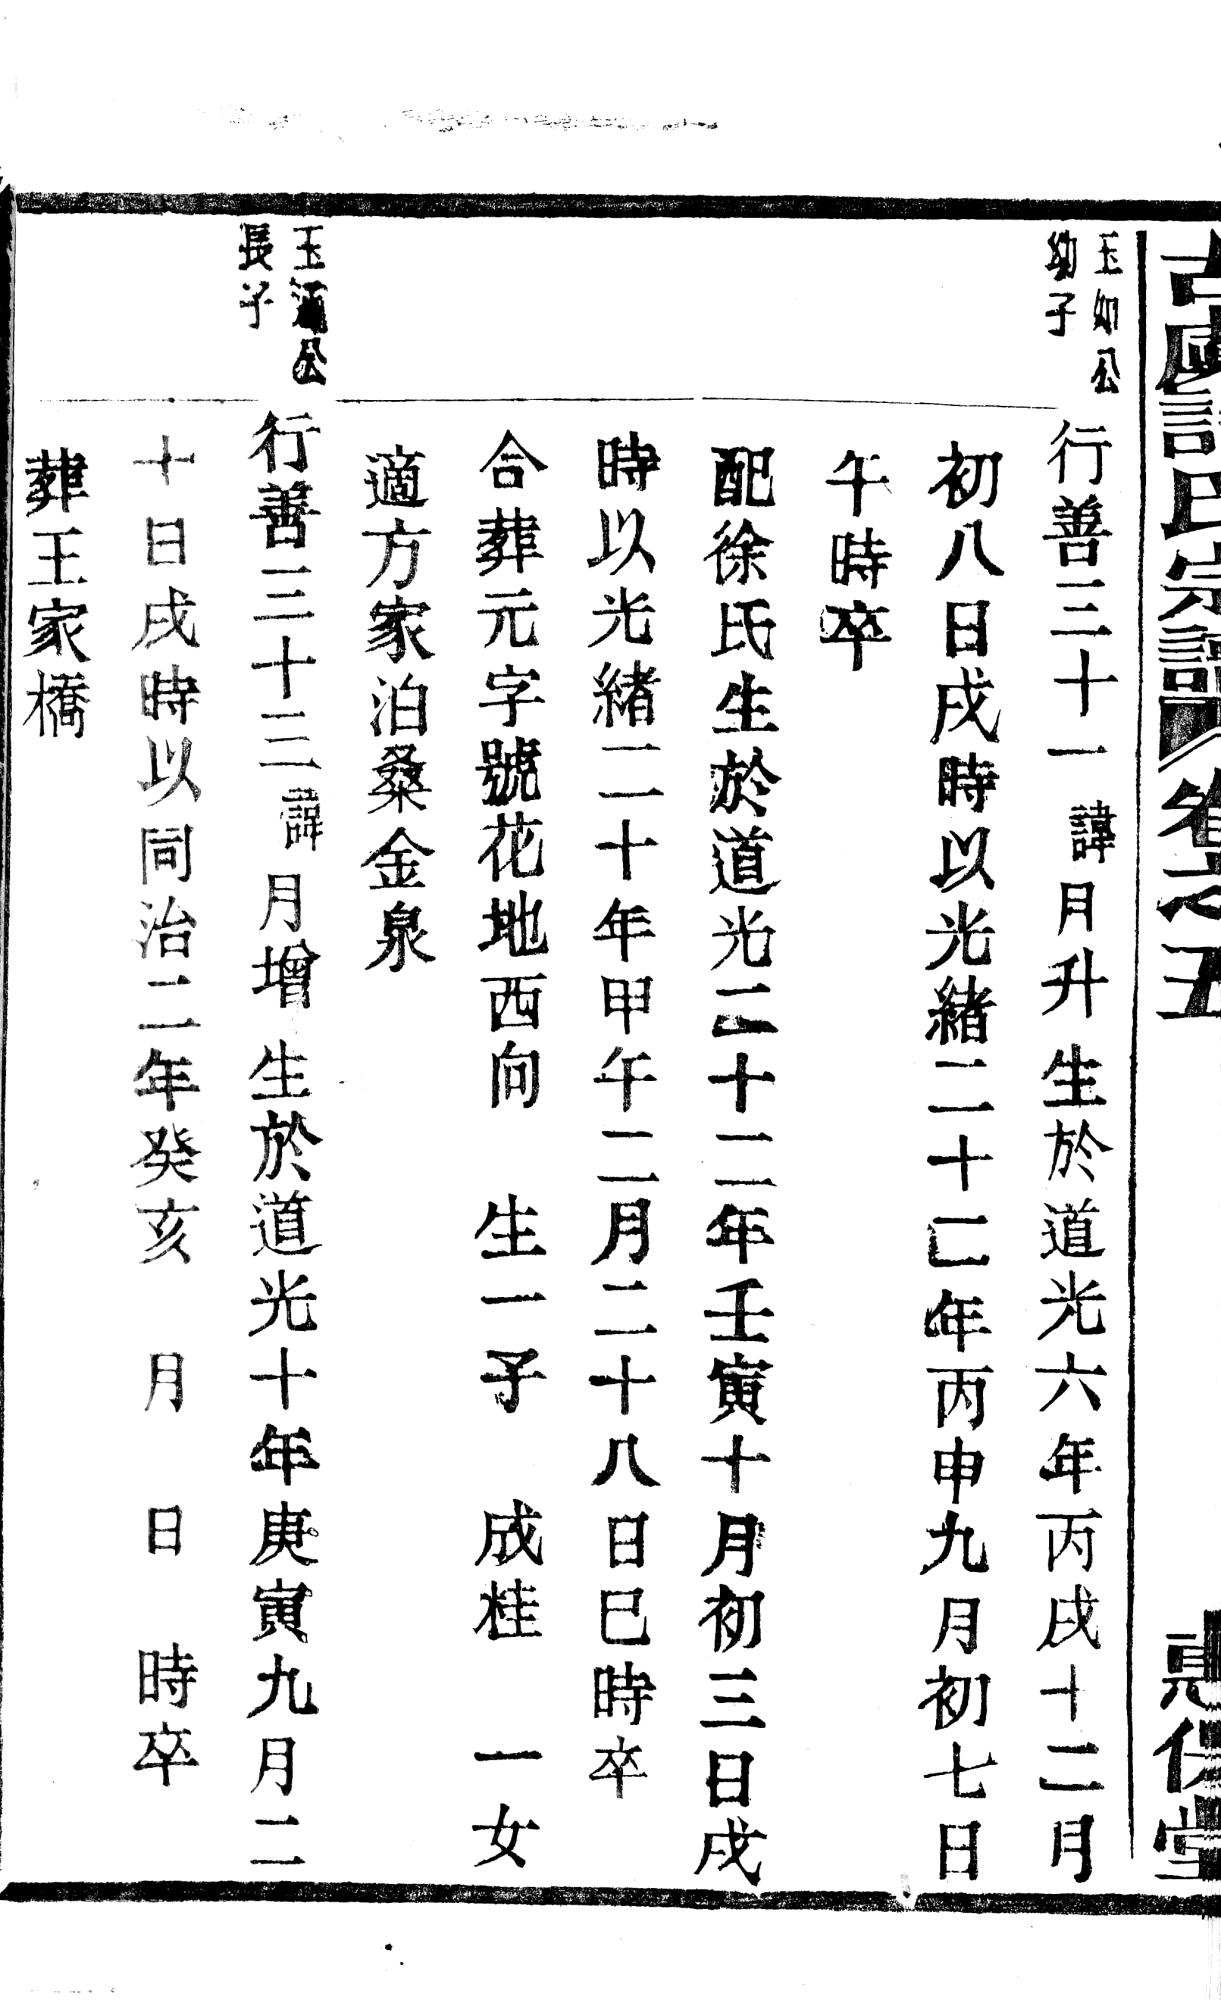 古虞許氏宗譜 卷之五 惠保堂
玉如公
幼子
行善三十一諱月升 生於道光六年丙戌十二月
初八日戌時以光緒二十二年丙申九月初七日
午時卒
配徐氏生於道光二十二年壬寅十月初三日戌
時以光緒二十年甲午二月二十八日巳時卒
合葬元字號花地西向 生一子 成桂 一女
適方家泊桑金泉
玉公
長子
行善三十三諱月增 生於道光十年庚寅九月二
十日戌時以同治二年癸亥 月 日 時卒
葬王家橋